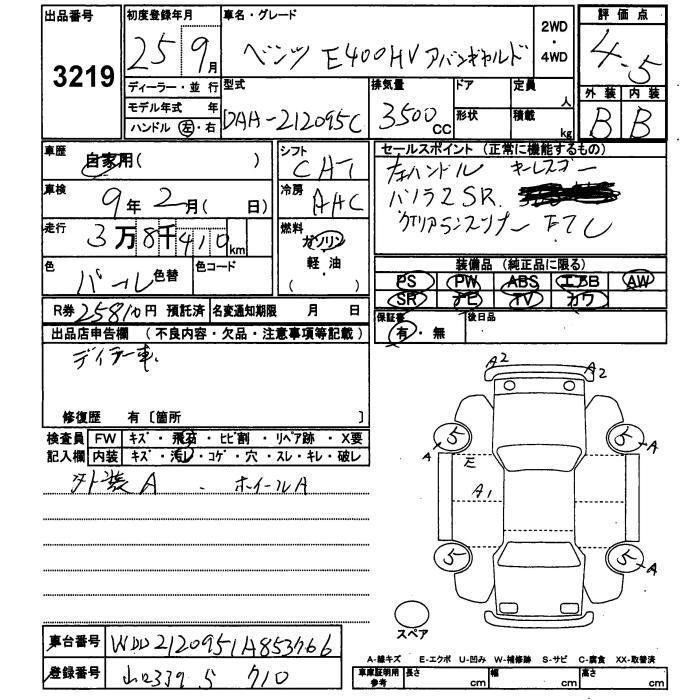 出品番号 3219
初度登録年月 25 9月
車名・グレード ベンツ E400HV アバンギャルド
2WD ・ 4WD
評価点 4.5
外装 内装
B B
ディーラー・並行
モデル年式 年
ハンドル 左・右
型式 DAA-212095C
排気量 3500cc
ドア
形状
定員 人
積載 kg
車歴 自家用( )
車検 9年2月( 日)
走行 3万8千410km
色 パール 色替
色コード
シフト CAT
冷房 AAC
燃料 ガソリン
軽・油
セールスポイント (正常に機能するもの)
左ハンドル キーレスゴー
パノラマSR.
ETC
装備品 (純正品に限る)
PS PW ABS エアB AW
SR ナビ TV カワ
保証書 有・無
後日品
R券 25810円 預託済
名変通知期限 月 日
出品店申告欄 (不良内容・欠品・注意事項等記載)
ディーラー車.
修復歴 有〔箇所 〕
検査員 FW キズ・飛石・ヒビ割・リペア跡・X要
記入欄 内装 キズ・汚レ・コゲ・穴・スレ・キレ・破レ
外装A . ホイールA
A2 A2
5 5
A E A
A1
5 5
A
スペア
車台番号 WDD2120951A853766
登録番号 山口339 S 710
A-線キズ E-エクボ U-凹み W-補修跡 S-サビ C-腐食 XX-取替済
車庫証明用参考 長さ cm 幅 cm 高さ cm